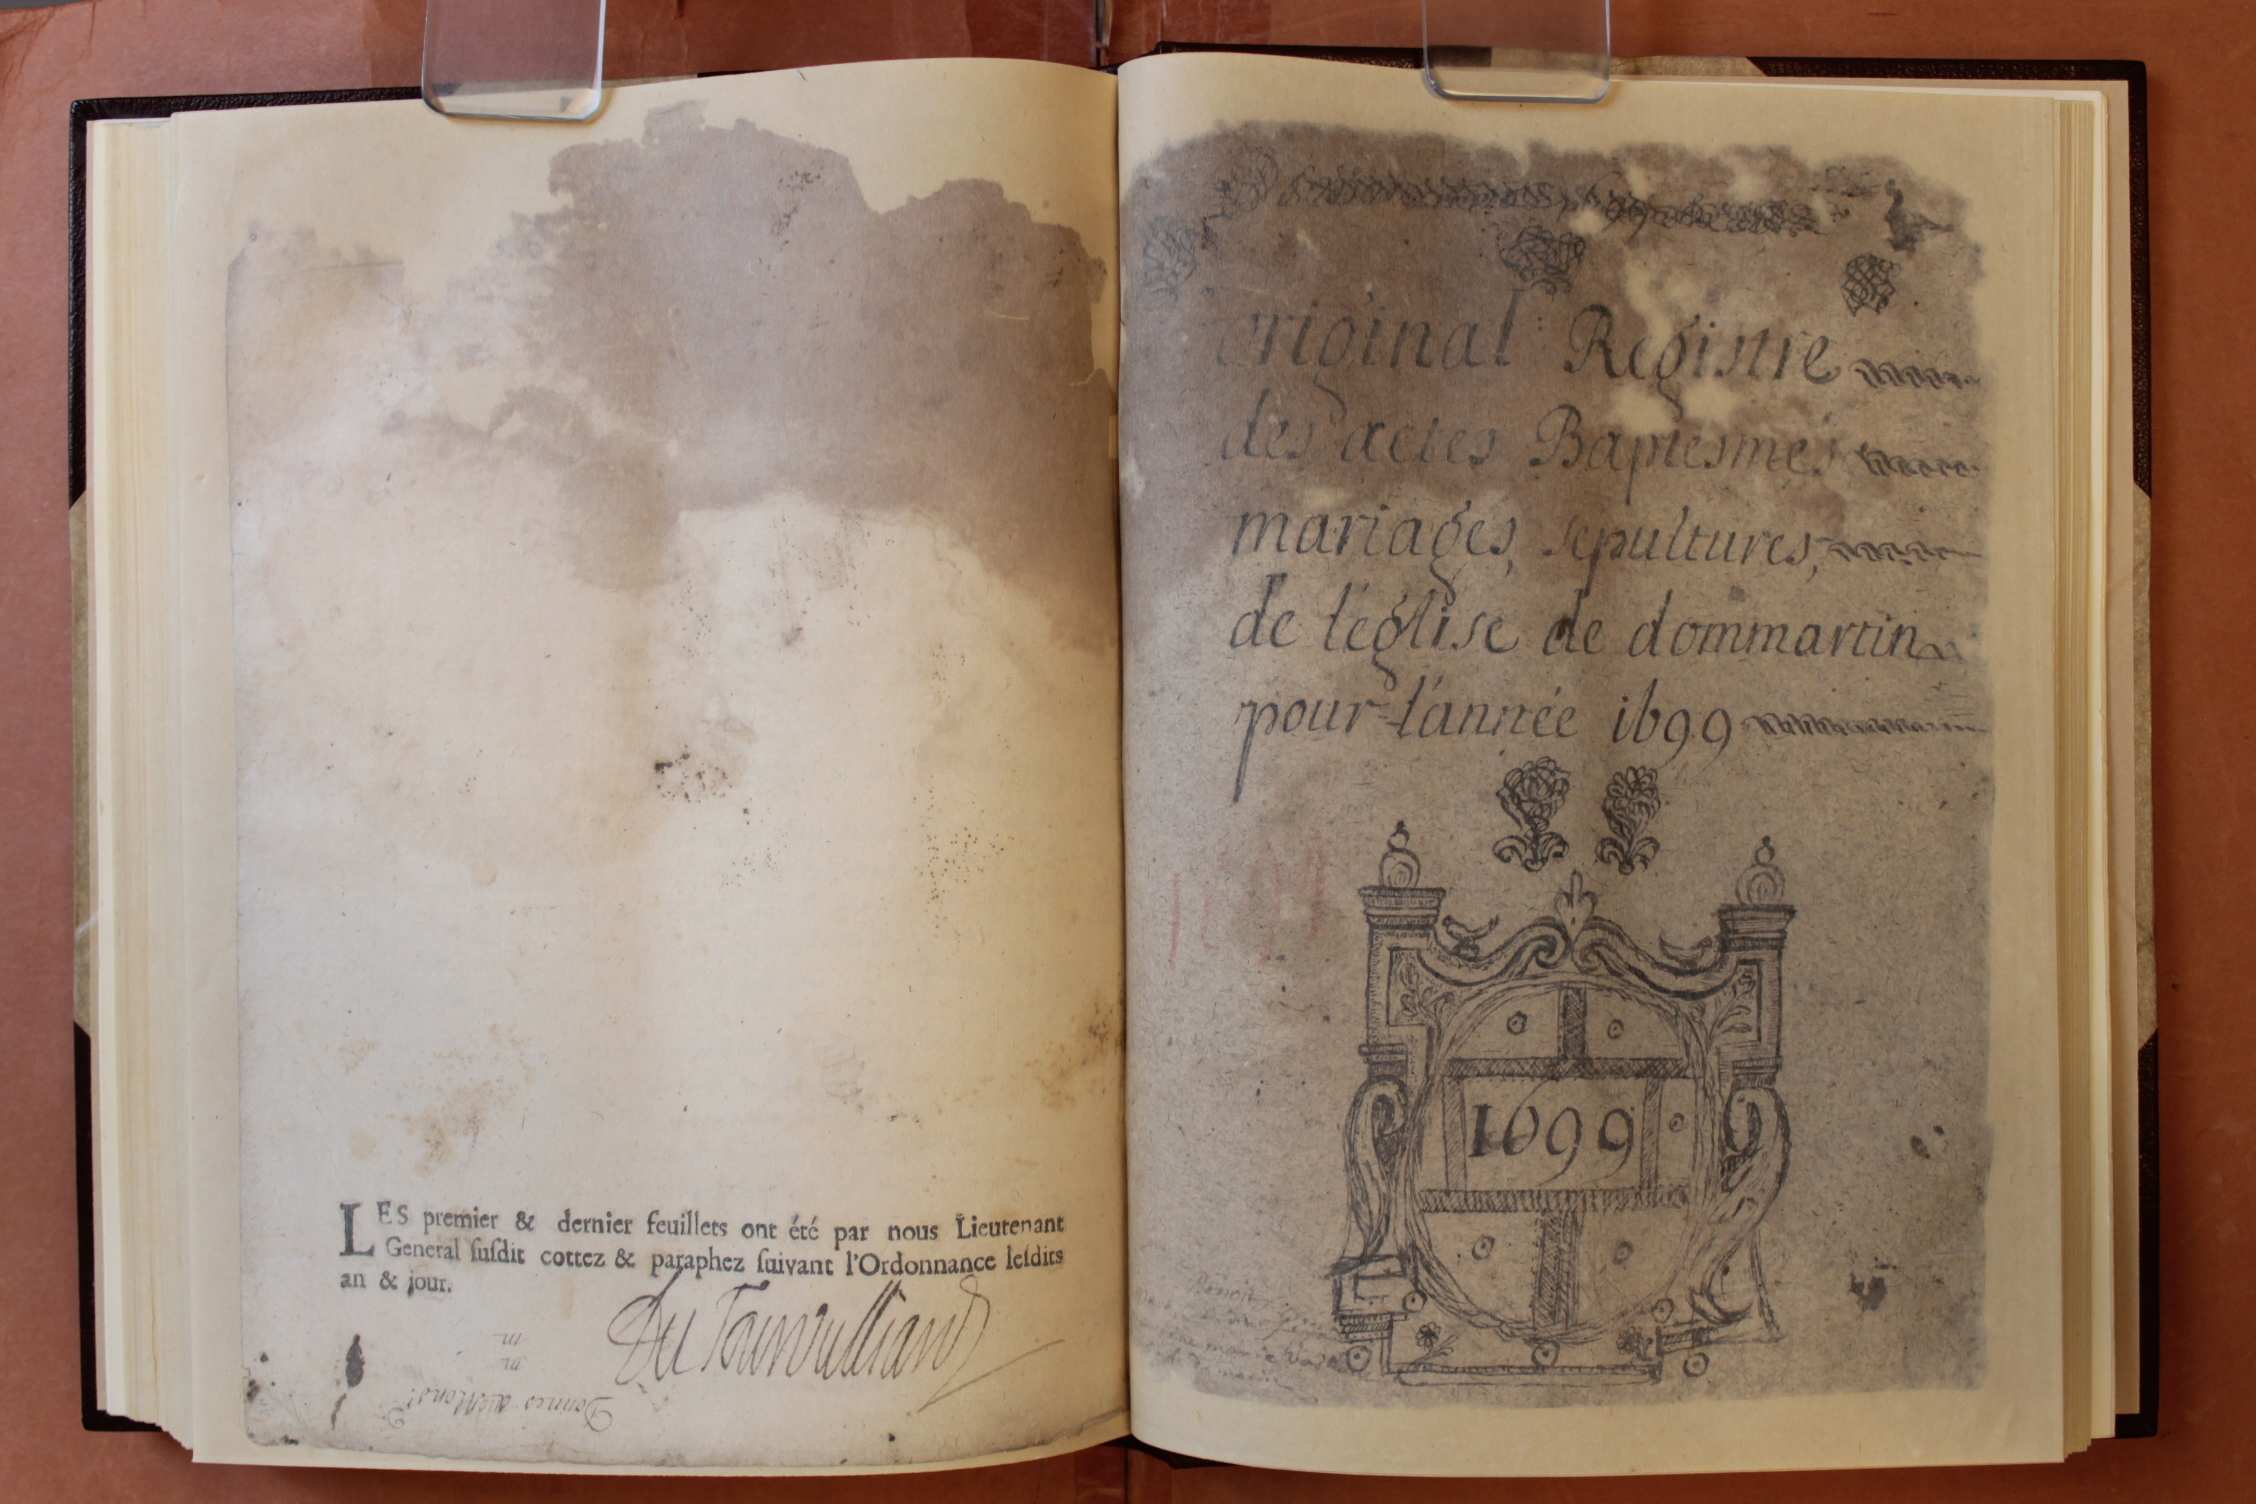 LES premier & dernier feuillets ont été par nous Lieutenant
General ſuſdit cottez & paraphez ſuivant l'Ordonnance leſdits
an & jour.
Donnes a Mons.r
m
m
original Registre
des actes Baptesmes
mariages, sepultures,
de l'église de dommartin
pour l'année 1699
1699
1699